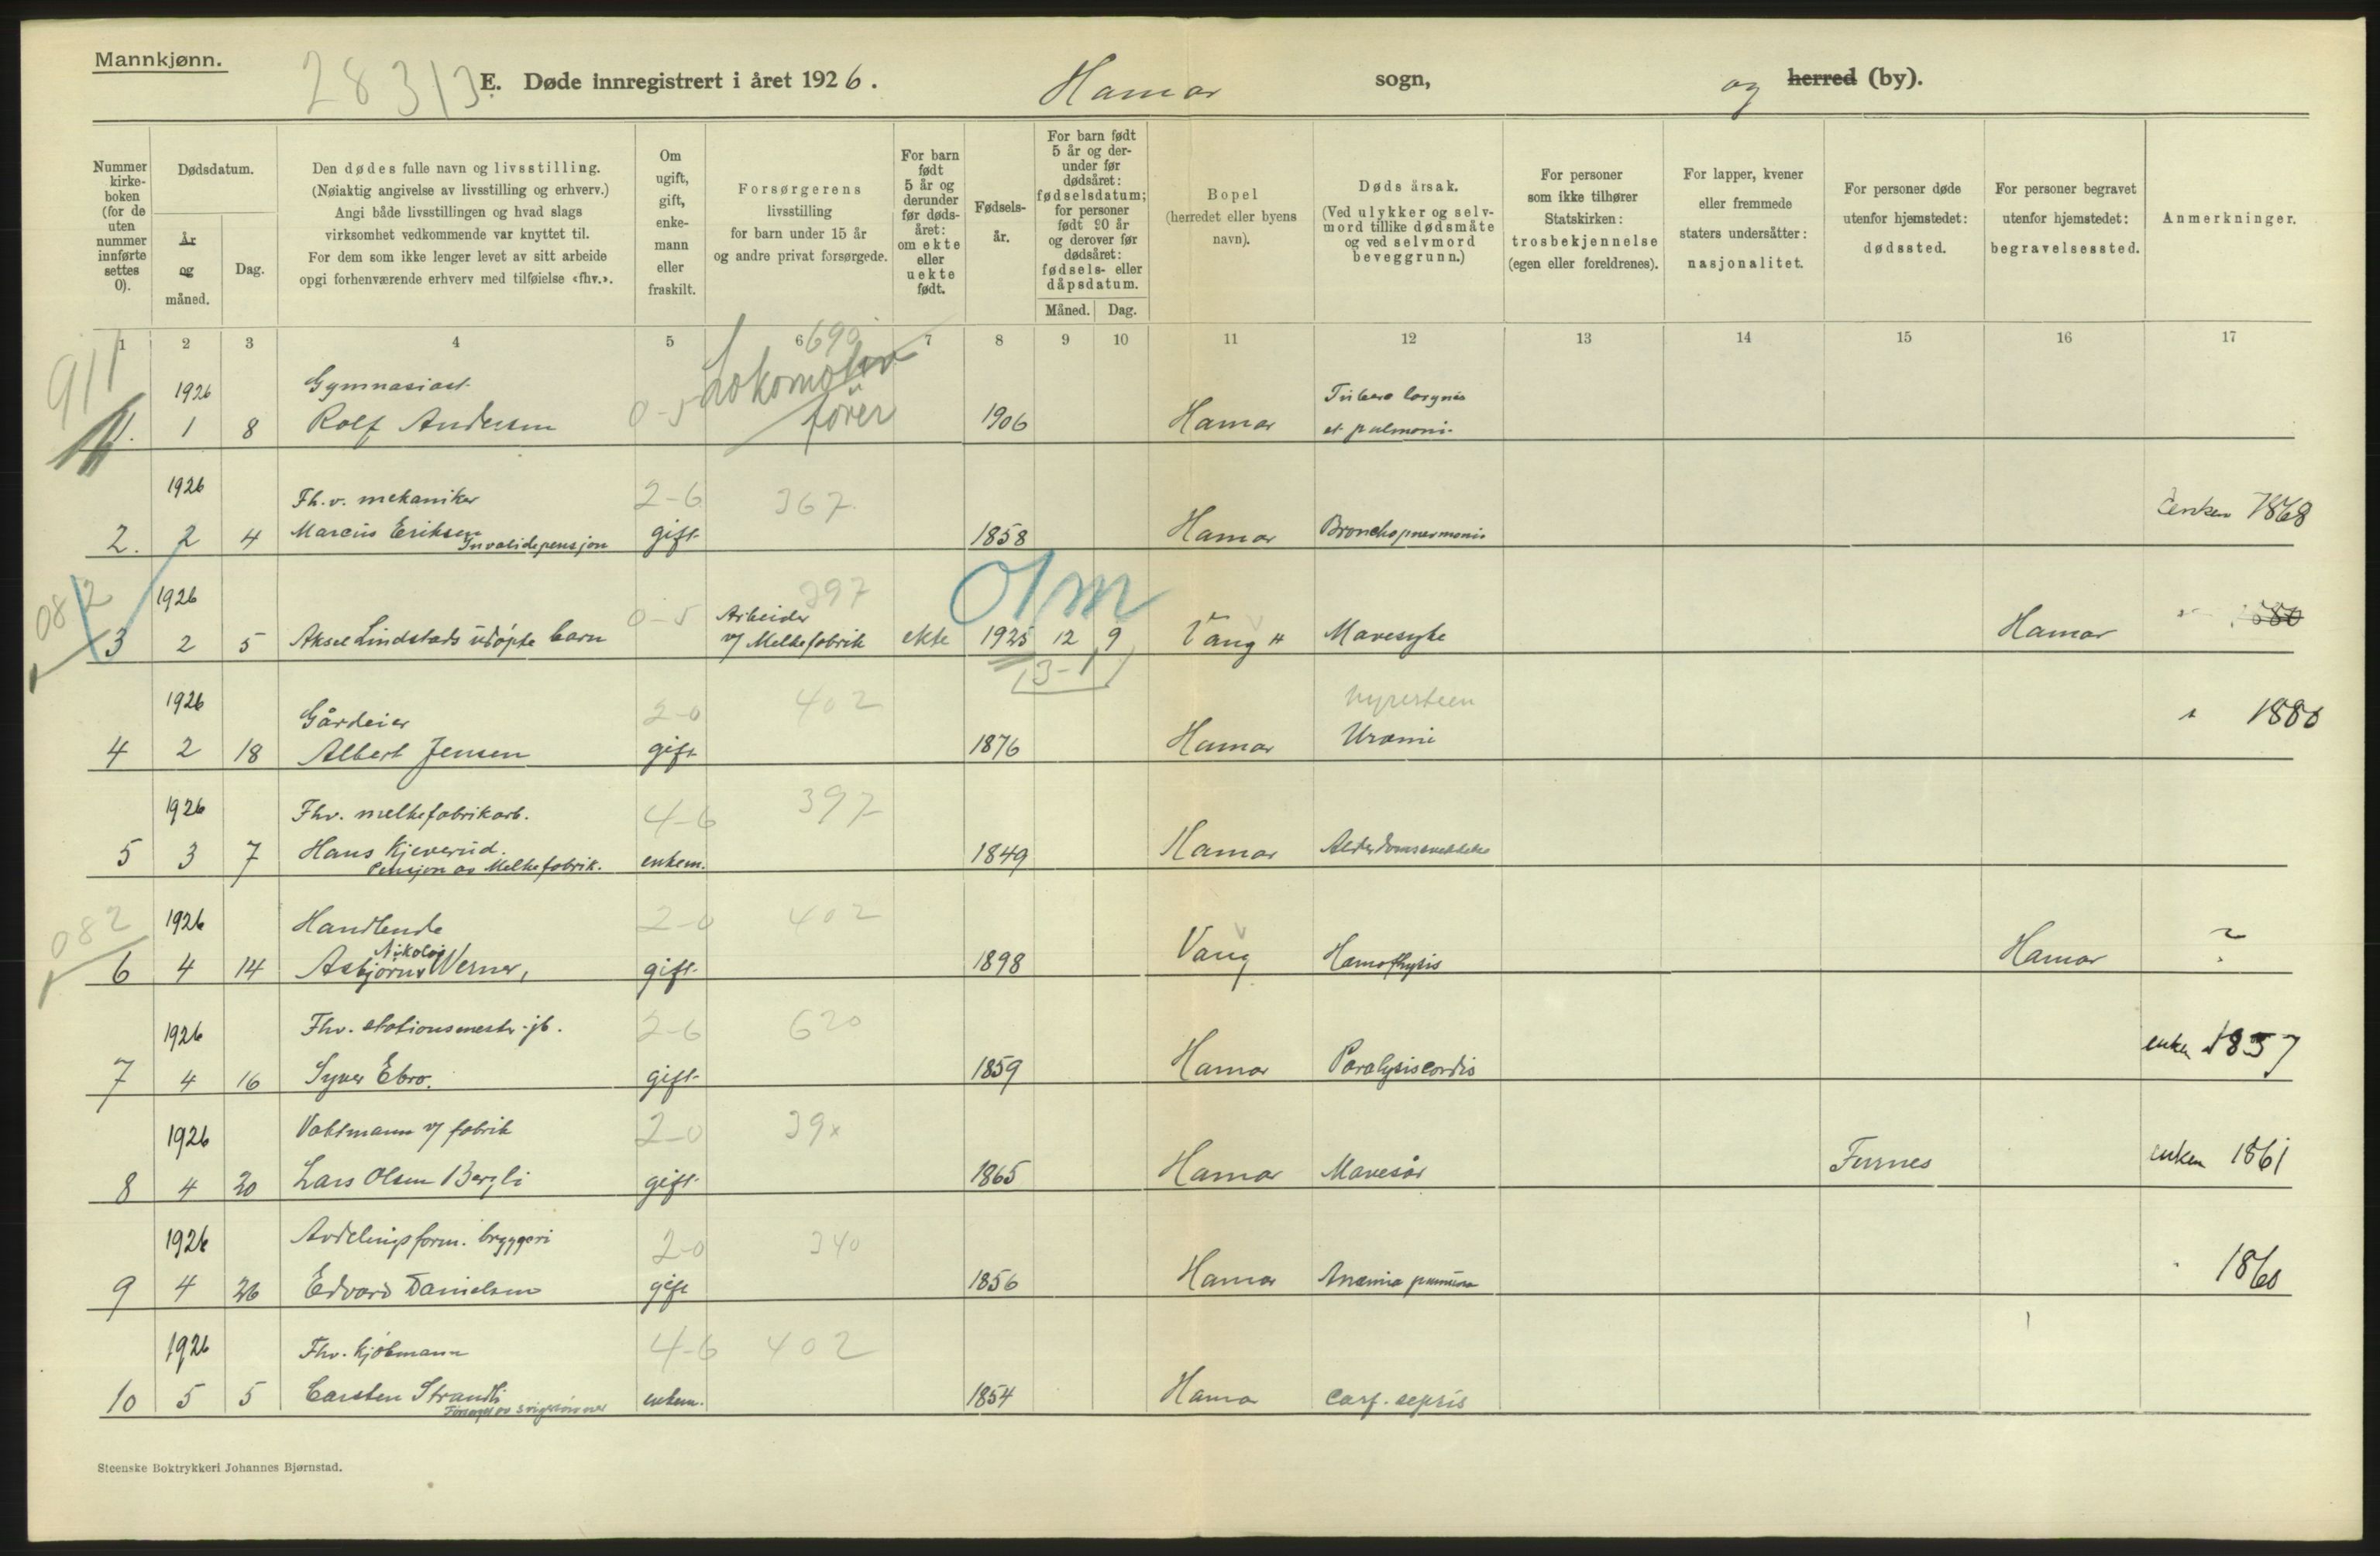 Mannkjønn.
28313 E. Døde innregistrert i året 1926. Hamar sogn, og herred (by).
Nummer kirke-boken (for de uten nummer innførte settes 0).
Dødsdatum.
År og måned.
Dag.
Den dødes fulle navn og livsstilling.
(Nøiaktig angivelse av livsstilling og erhverv.)
Angi både livsstillingen og hvad slags
virksomhet vedkommende var knyttet til.
For dem som ikke lenger levet av sitt arbeide
opgi forhenværende erhverv med tilføielse «fhv.».
Om ugift, gift, enke-mann eller fraskilt.
Forsørgerens
livsstilling
for barn under 15 år
og andre privat forsørgede.
For barn født 5 år og derunder før døds-året: om ekte eller uekte født.
Fødsels-år.
For barn født 5 år og der-under før dødsåret: fødselsdatum; for personer født 90 år og derover før dødsåret: fødsels- eller dåpsdatum.
Måned. Dag.
Bopel
(herredet eller byens
navn).
Dødsårsak.
(Ved ulykker og selv-
mord tillike dødsmåte
og ved selvmord
beveggrunn.)
For personer
som ikke tilhører
Statskirken:
trosbekjennelse
(egen eller foreldrenes).
For lapper, kvener
eller fremmede
staters undersåtter:
nasjonalitet.
For personer døde
utenfor hjemstedet:
dødssted.
For personer begravet
utenfor hjemstedet:
begravelsessted.
Anmerkninger.
1 2 3 4 5 6 7 8 9 10 11 12 13 14 15 16 17
911 690
1926 Gymnasiast Lokomotiv
1. 1 8 Rolf Andersen 0-5 fører 1906 Hamar et pulmoni.
1926 Fh.v. mekaniker 2-6 367 enken 1868
2. 2 4 Marcus Eriksen Invalidepensjon gift 1858 Hamar Bronchopneumoni
082 1926 0-5 Arbeider 397 Olm
3 2 5 Aksel Lindstads udøpte barn v/ Melkefabrik ekte 1925 12 9 Vang H Mavesyke Hamar
13-1
1926 Gårdeier 2-0 402 nyresteen 1880
4 2 18 Albert Jensen gift 1876 Hamar Uræmi
1926 Fhv. melkefabrikarb. 4-6 397
5 3 7 Hans Kjeverud. Pensjon av Melkefabrik. enkem. 1849 Hamar
082 1926 Handlende 2-0 402
6 4 14 Asbjørn Nikolai Werner, gift 1898 Vang Hæmoptysis Hamar ?
1926 Fhv. stationsmestr. jb. 2-6 620 enken 1857
7 4 16 Syver Ebro. gift 1859 Hamar Paralysis cordis
1926 Vaktmann v/ fabrik 2-0 39x
8 4 20 Lars Olsen Bergli gift 1865 Hamar Mavesår Furnes enken 1861
1926 Avdelingsform. bryggeri 2-0 340
9 4 26 Edvard Danielsen gift 1856 Hamar Anæmia 1860
1926 Fhv. kjøbmann 4-6 402
10 5 5 Carsten Strandli enkem. 1854 Hamar
Steenske Boktrykkeri Johannes Bjørnstad.